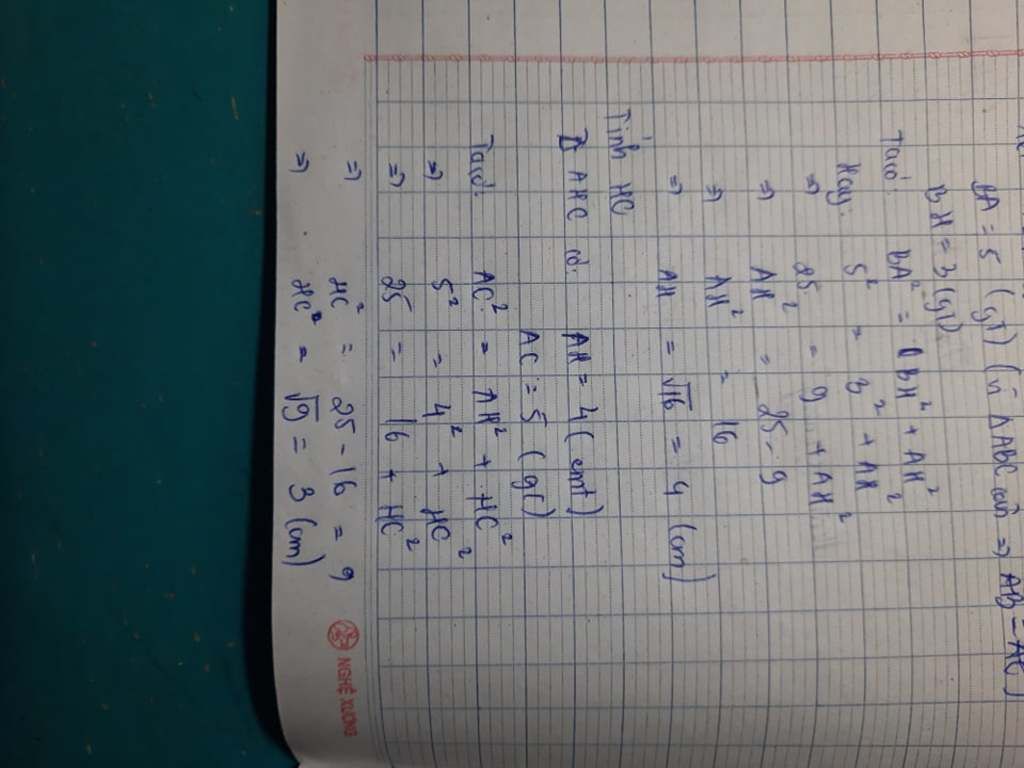 BA = 5 (gt) (vì Δ ABC cân => AB = AC)
BH = 3 (gt)
Ta có: BA² = BH² + AH²
Hay: 5² = 3² + AH²
=> 25 = 9 + AH²
=> AH² = 25 - 9
=> AH² = 16
=> AH = √16 = 4 (cm)
Tính HC
Δ AHC có: AH = 4 (cmt)
AC = 5 (gt)
Ta có: AC² = AH² + HC²
=> 5² = 4² + HC²
=> 25 = 16 + HC²
=> HC² = 25 - 16 = 9
=> HC² = √9 = 3 (cm)
NGHỆ XƯƠNG